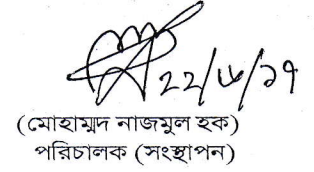 ২২/৬/১৭
(মোহাম্মদ নাজমুল হক)
পরিচালক (সংস্থাপন)